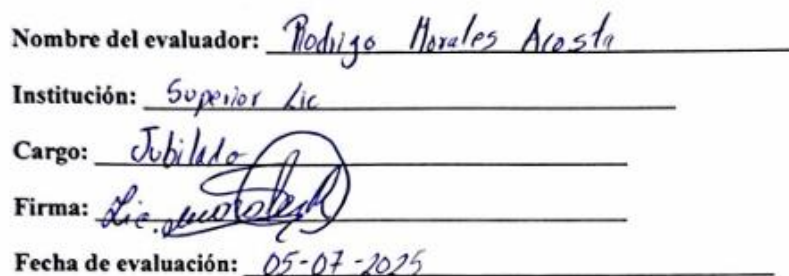 Nombre del evaluador: Rodrigo Morales Acosta
Institución: Superior Lic
Cargo: Jubilado
Firma: Lic. Morales
Fecha de evaluación: 05-07-2025